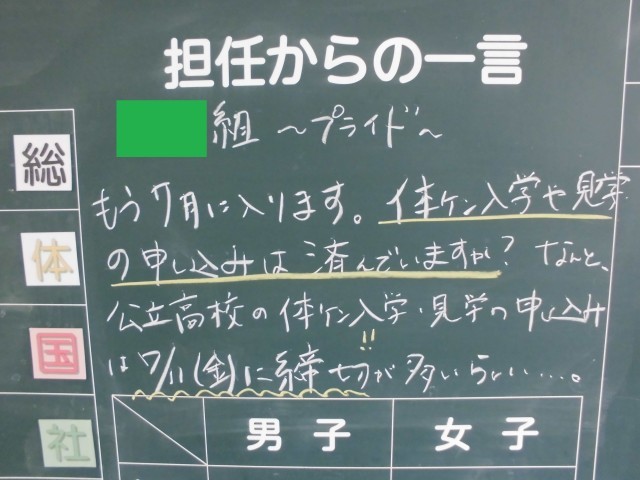 担任からの一言
組 ～プライド～
もう7月に入ります。体ケン入学や見学
の申し込みは済んでいますか？ なんと、
公立高校の体ケン入学・見学の申し込み
は7/11(金)に締切が多いらしい…。
!!
総
体
国
社
男子
女子